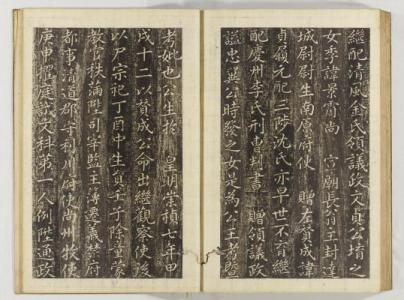 繼配淸風金氏領議政文貞公堉之
女季諱景霌尚 宣廟長翁主封達
城尉尉生南原府使 贈左贊成諱
貞履元配三陟沈氏亦早世不育繼
配慶州李氏刑曹判書 贈領議政
諡忠翼公時發之女是為公王考曁
考妣也公生於 皇明崇禎七年甲
戌十二以贊成公命出繼觀察使後
以尸宗祀丁酉中生員壬子除童蒙
教官秩滿陞司宰監主簿遷義禁府
都事淸道郡守利川府使尚州牧使
庚申擢庭試文科第一人例陞通政